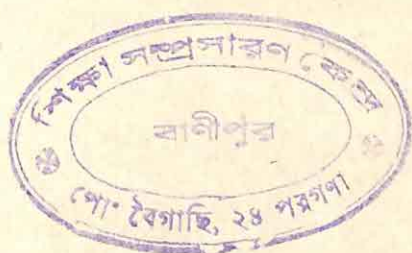 শিক্ষা সম্প্রসারণ কেন্দ্র
বাণীপুর
পো° বৈগাছি, ২৪ পরগণা